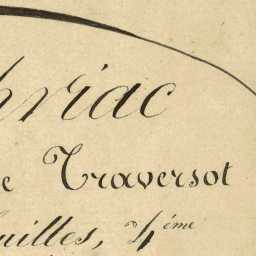 hriac
e Traversot
uilles, 4ème